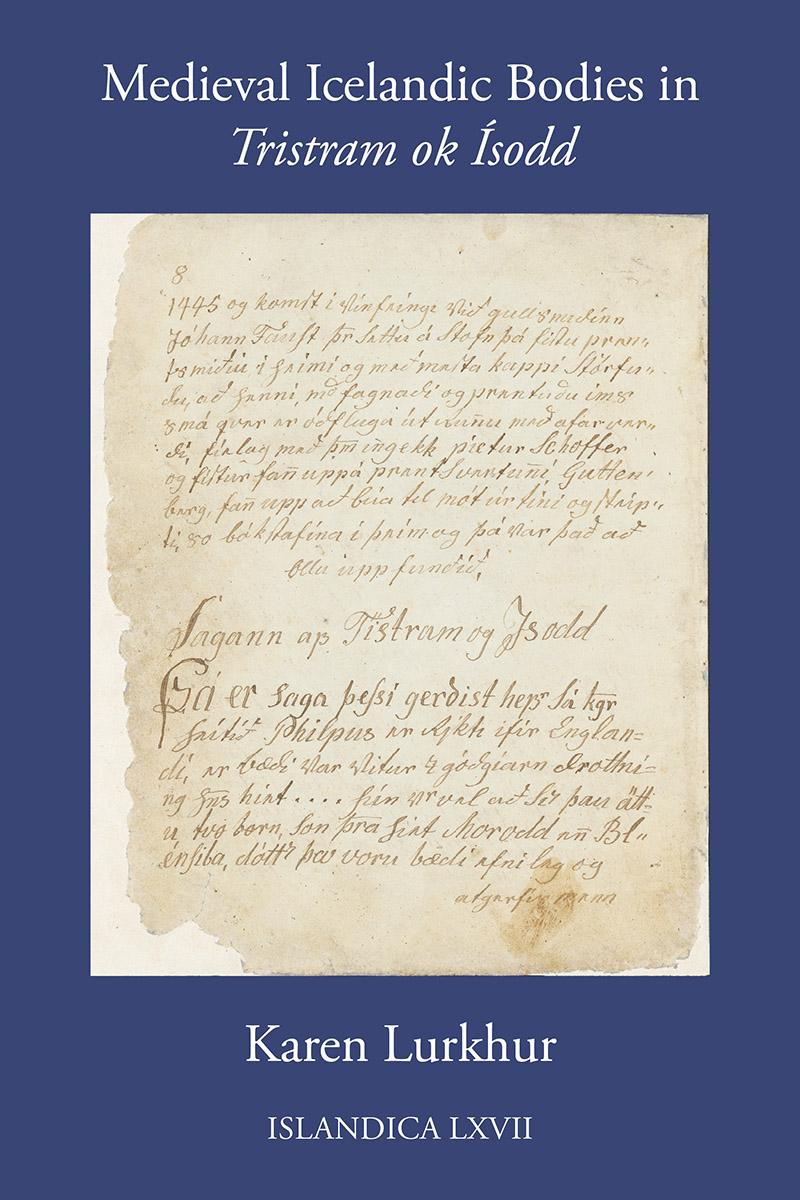 Medieval Icelandic Bodies in
Tristram ok Ísodd
8
1445 og komst i Vinfeingi Við gullsmiðinn
Jóhann Faust þr settu á Stofn þá fistu pren„
ts miðiu i heimi og með mesta kappi Störfu„
du, að henni, með fagnaði og prentuðu ims
smá qver er óðfluga út runnu með afar ver„
di, fielag með þm ingekk pietur Schoffer
og fistur fañ uppá prent Svertuñi Gutten„
berg, fañ upp að búa til mót úr tini og steip„
ti, so bókstafina i þeim og þá var það að
Ollu upp fundið,
Sagann af Tistram og Isodd
Það er saga þessi gerdist hefr sá kgr
heitið Philpus er Rjkti ifir Englan=
di, er bædi var Vitur & góðgiarn Drottni=
ng hns hiet .... hún vr vel að sér þau átt=
u tvö börn, Son þra hiet Morodd eñ Bl„
énsiba, dóttr þav voru bædi efnileg og
atgerfis menn
Karen Lurkhur
ISLANDICA LXVII